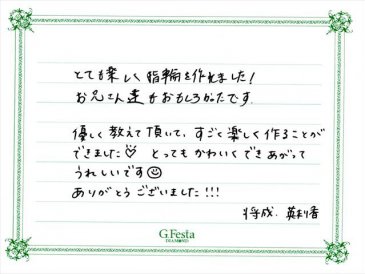 とても楽しく指輪を作れました!
お兄さん達がおもしろかったです.
優しく教えて頂いて、すごく楽しく作ることが
できました♡ とってもかわいくできあがって
うれしいです☺
ありがとうございました!!!
将成. 英利香
G.Festa
DIAMOND